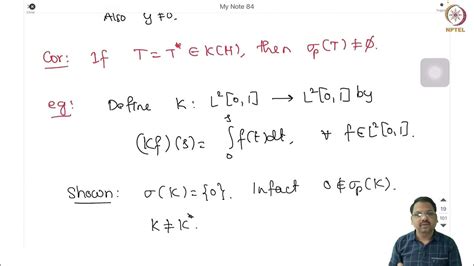 My Note 84
NPTEL
Also y≠0.
Cor: If T = T* ∈ K(H), then σp(T) ≠ ∅.
eg: Define K: L²[0,1] → L²[0,1] by
(Kf)(s) = ∫₀ˢ f(t)dt, ∀ f∈L²[0,1].
Shown: σ(K) = {0}. Infact 0∉σp(K).
K≠K*.